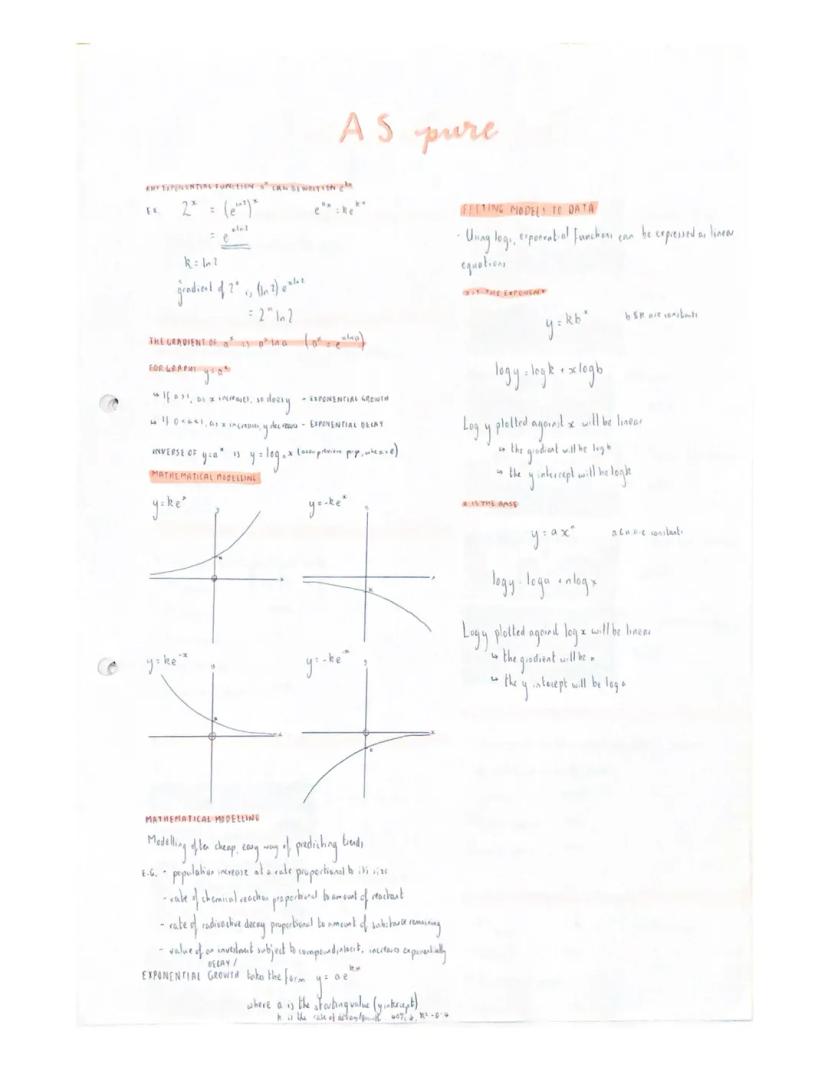 AS pure
ANY EXPONENTIAL FUNCTION aˣ CAN BE WRITTEN eᵏˣ
EX. 2ˣ = (e^(ln2))ˣ
= e^(xln2)
k = ln2
gradient of 2ˣ is (ln2)e^(xln2)
= 2ˣ ln2
THE GRADIENT OF aˣ is aˣ lna (aˣ = e^(xlna))
FOR GRAPHS y=aˣ
↳ If a>1, as x increases, so does y - EXPONENTIAL GROWTH
↳ If 0<a<1, as x increases, y decreases - EXPONENTIAL DECAY
INVERSE OF y=aˣ is y=logₐx
MATHEMATICAL MODELLING
y=keˣ
y=-keˣ
y=ke⁻ˣ
y=-ke⁻ˣ
MATHEMATICAL MODELLING
Modelling often cheap, easy way of predicting trends
E.G. - population increase at a rate proportional to its size
- rate of chemical reaction proportional to amount of reactant
- rate of radioactive decay proportional to amount of substance remaining
- value of an investment subject to compound interest, increases exponentially
DECAY /
EXPONENTIAL GROWTH takes the form y = ae^(kx)
where a is the starting value (y intercept)
k is the rate of decay/growth
FITTING MODELS TO DATA
- Using logs, exponential functions can be expressed as linear
equations
x IS THE EXPONENT
y = kbˣ b & k are constants
logy = logk + xlogb
Log y plotted against x will be linear
↳ the gradient will be logb
↳ the y intercept will be logk
x IS THE BASE
y = axⁿ a & n are constants
logy = loga + nlogx
Log y plotted against log x will be linear
↳ the gradient will be n
↳ the y intercept will be log a